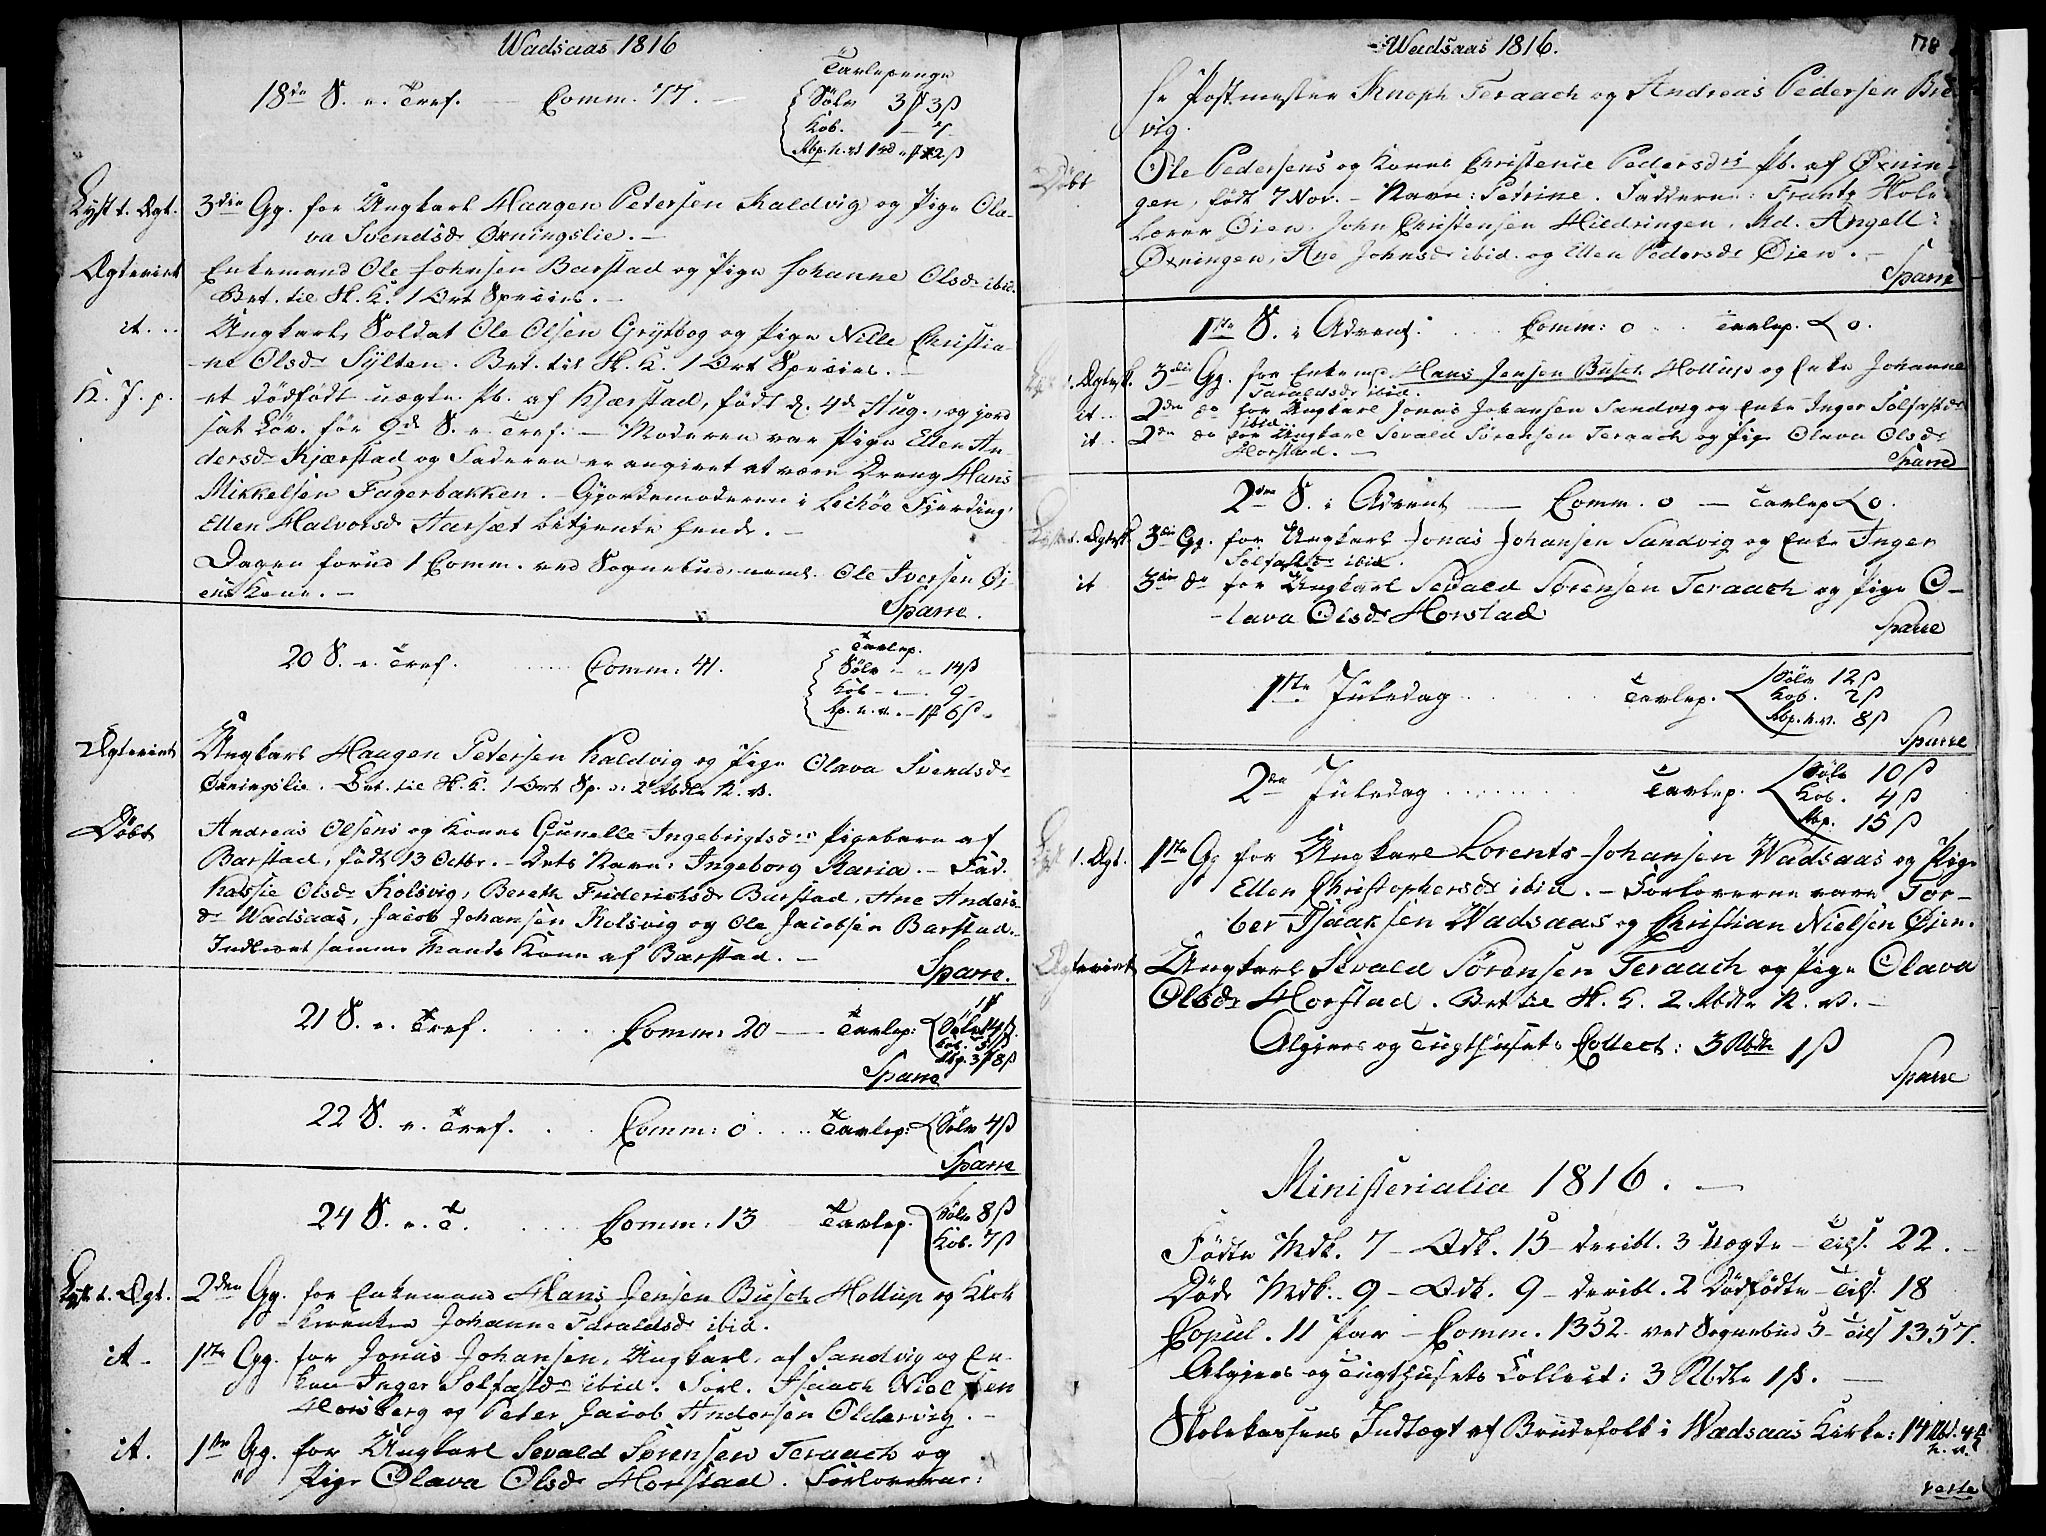 Wadsaas 1816
Tavlepenge
18de S. e. Tref. — Comm. 77. —
Sölv 3 ℳ 3 ß
Kob.
Lyst t. Ægt. 3die Gg. for Ungkarl Haagen Petersen Kaldvig og Pige Ola-
va Svendsdr Øxningslie. —
Ægteviet Enkemand Ole Johnsen Barstad og Pige Johanne Olsdr ibid.
Bet. til Sk. K. 1 Ort Species. —
it. .. Ungkarl, Soldat Ole Olsen Grytbog og Pige Nille Christia-
ne Olsdr Sylten. Bet. til Sk. K. 1 Ort Species. —
K. J. p. et dödfödt uægte Pb. af Kjærstad, födt d. 4de Aug., og jord
sat Löv. för 9de S. e. Tref. — Moderen var Pige Ellen An-
dersdr Kjærstad og Faderen er angivet at være Dreng Hans
Mikkelsen Fagerbakken. — Gjordemoderen i Lechöe Fjerding
Ellen Halvorsdr Aarsæt betjente hende. —
Dagen forud 1 Comm. ved Sognebud, neml. Ole Iversen Öi-
ens Kone. —
Sparre.
20 S. e. Tref. Comm: 41.
Tavlep.
Sölv — 14 ß
Kob — 9
Rp. n. v. — 1 ℳ 6 ß
Ægteviet Ungkarl Haagen Petersen Kaldvig og Pige Olava Svendsdr
Öxningslie. Bet. til Sk. K. 1 Ort Sp. 2 Rbdlr N. V.
Döbt Andreas Olsens og Kones Gunelle Ingebrigtsdrs Pigebarn af
Barstad, födt 13 Octbr. — Dets Navn: Ingeborg Maria. — Fad.
Kassie Olsdr Kolsvig, Bereth Friderichsdr Barstad, Ane Anders-
dr Wadsaas, Jacob Johansen Kolsvig og Ole Jacobsen Barstad.
Indledet samme Mands Kone af Barstad. —
Sparre.
21 S. e. Tref. Comm: 20 — Tavlep:
Kob. 3 ß
Rbp. 3 ℳ 8 ß
Sparre
22 S. e. Tref. Comm: 0 Tavlep: Sölv 4 ß
Sparre
24 S. e. T. Comm: 13 Tavlep. Sölv 8 ß
Kob. 7 ß
Lyst t. Ægt. 2den Gg. for Enkemand Hans Jensen Busch Hollup og Klok
kerenken Johanne Taraldsdr ibid.
it — 1ste Gg. for Jonas Johansen, Ungkarl, af Sandvig og En-
ken Inger Solfastdr ibid. Forl. Isaach Nielsen
Horsberg og Peter Jacob Andersen Oldervig. —
it. 1ste Gg. for Ungkarl Sevald Sörensen Teraach og
Pige Olava Olsdr Horstad. Forloverne:
Wadsaas 1816.
178
Hr Postmester Knoph Teraach og Andreas Pedersen Bre
vig.
Döbt Ole Pedersens og Kones Christence Pedersdrs Pb. af Øxnin-
gen, födt 7 Nov. — Navn: Petrine. Fadderne: Frants Hol-
Öien, John Christensen Hildringen, Md. Angell
Øxningen, Ane Johnsdr ibid. og Ellen Pedersdr Öien. —
Sparre
1ste S. i Advent. Comm: 0 Tavlep. 0.
Lyst t. Ægtesk. 3die Gg. for Enkemd Hans Jensen Busch Hollup og Enke Johanne
Taraldsdr ibid.
it .. 2den do for Ungkarl Jonas Johansen Sandvig og Enke Inger Solfastdr
ibid.
it .. 2den do for Ungkarl Sevald Sörensen Teraach og Pige Olava Olsdr
Horstad. —
Sparre
2den S. i Advent — Comm. 0 — Tavlep 0.
Lyst t. Ægtesk. 3die Gg. for Ungkarl Jonas Johansen Sandvig og Enke Inger
Solfastdr ibid.
it 3die do for Ungkarl Sevald Sörensen Teraach og Pige O-
lava Olsdr Horstad
Sparre
1ste Juledag Tavlep. Sölv 12 ß
Kob. 2 ß
Rbp. n. v. 8 ß
Sparre
2den Juledag Tavlep. Sölv 10 ß
Kob. 4 ß
Rbp. 15 ß
Lyst t. Ægt. 1ste Gg for Ungkarl Lorents Johansen Wadsaas og Pige
Ellen Christophersdr ibid. — Forloverne vare Tor-
ber Isaaksen Wadsaas og Christian Nielsen Öien.
Ægteviet Ungkarl Sevald Sörensen Teraach og Pige Olava
Olsdr Horstad. Bet til Sk. K. 2 Rbdlr N. V. —
Algiers og Tugthusets Collect: 3 Rbdlr 1 ß
Sparre
Ministerialia 1816. —
Födte Mdk. 7 — Qdk. 15 — deribl. 3 Uægte — Tils. 22. —
Döde Mdk. 9 — Qdk. 9 — deribl. 2 Dödfödte — Tils. 18
Copul. 11 Par — Comm. 1352 ved Sognebud 5 — Tils 1357.
Algiers og Tugthusets Collect: 3 Rbdlr 1 ß. —
Skolekassens Indtægt af Brudefolk i Wadsaas Kirke: 14 Rbd. 4
n. v.